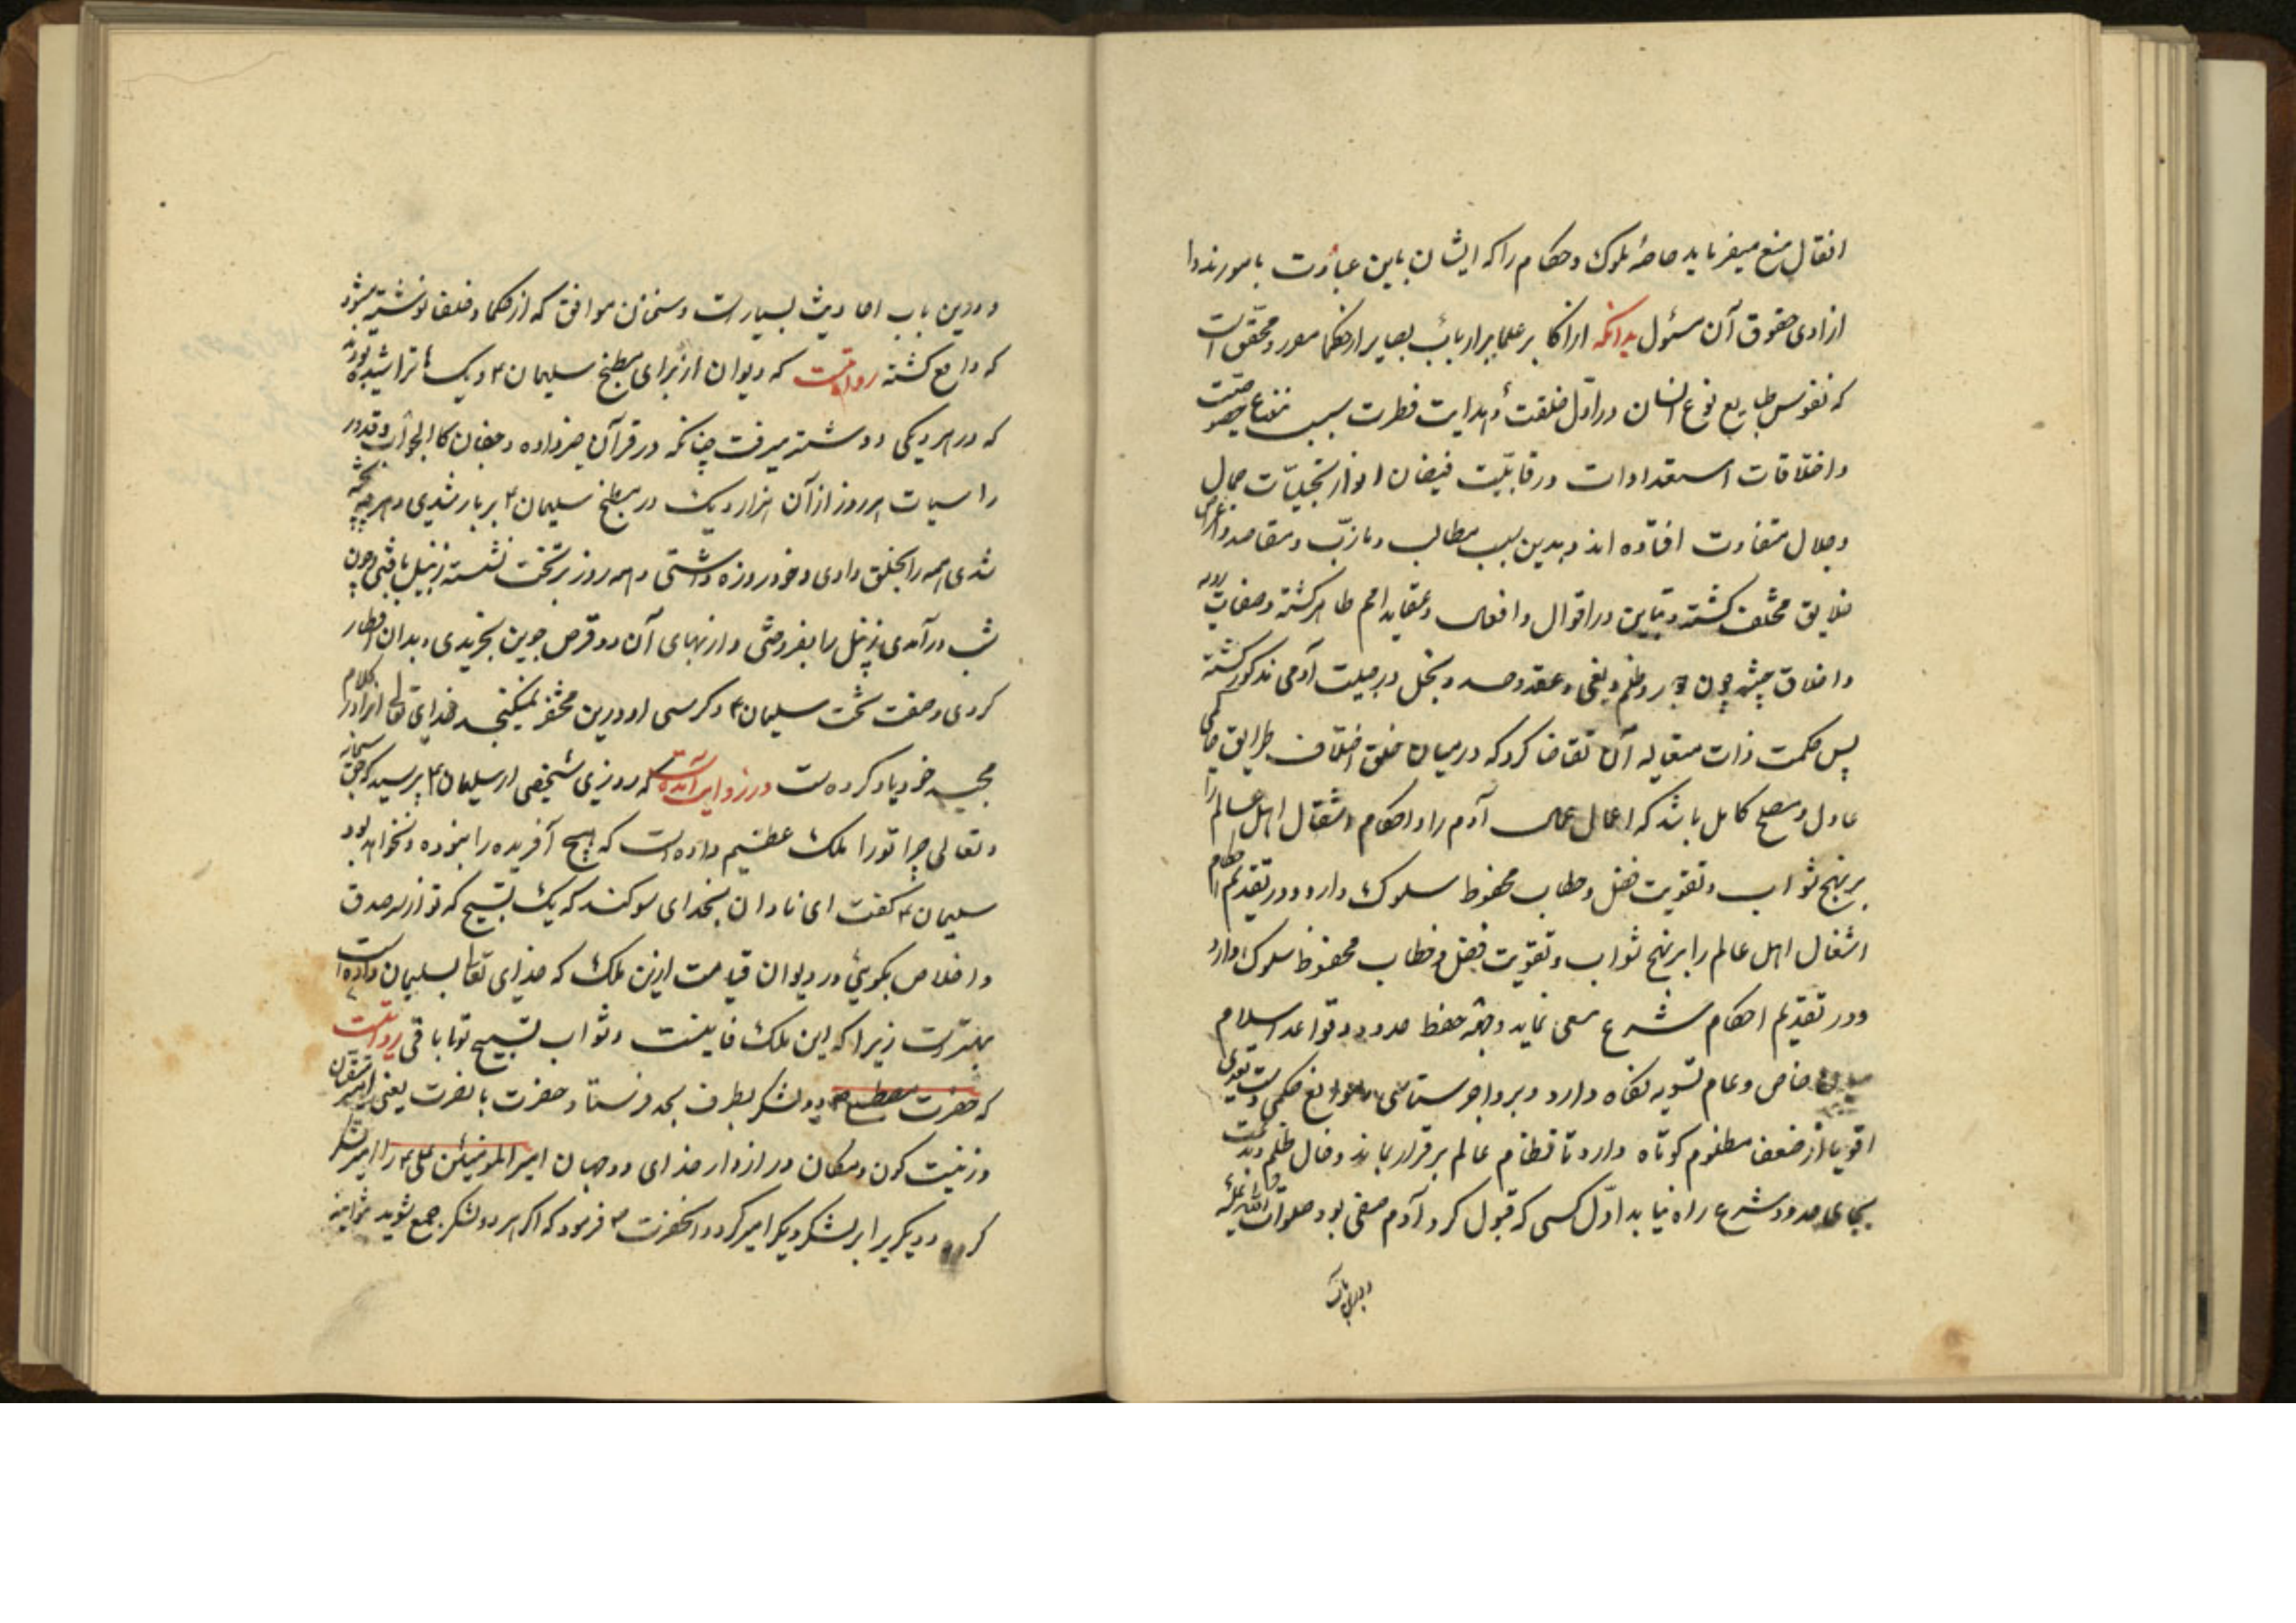 انتقال منع میفرماید خاصهٔ ملوک و حکام را که ایشان باین عبارت مامورند و از
ازادی حقوق آن مسئول بدانکه از اکابر علما بر ارباب بصایر از حکما مقرر و محقق است
که نفوس طبایع نوع انسان در اول خلقت و هدایت فطرت بسبب
و اختلافات استعدادات در قابلیّت فیضان انوار تجلیّات جمال
و جلال متفاوت افتاده اند و بدین سبب مطالب و مأرب و مقاصد و اغراض
خلایق مختلف کشته و تباین در اقوال و افعال و عقاید امم ظاهر کشته و صفات
و اخلاق چون و ظلم و بغی و حقد و حسد و بخل در جبلت آدمی مذکور کشته
پس حکمت ذات متعالیه آن تقاضا کرد که درمیان خلق اختلاف طرایق حاکمی
عادل و مصلح کامل باشد که اعمال عمال آدم را و احکام و اشتغال اهل عالم را
بر نهج ثواب و تقویت فضل و خطاب محفوظ سلوک دارد و در تقدیم احکام
اشغال اهل عالم را بر نهج ثواب و تقویت فضل و خطاب محفوظ سلوک دارد
و در تقدیم احکام شرع سعی نماید و جهة حفظ حدود و قواعد اسلام
میان خاص و عام تسویه نکاه دارد و دست تعدی
اقویا از ضعف مظلوم کوتاه دارد تا نظام عالم برقرار بماند و خال ظلم و بدعت
بجای حدود شرع راه نیابد اوّل کسی که قبول کرد آدم صفی بود صلوات الله علیه
و درین باب
و درین باب احادیث بسیار است و سخنان موافق که از حکما و خلفا نوشته میشود
که واقع کشته روایتست که دیوان از برای مطبخ سلیمان ع دیک ها تراشیده بودند
که در هر دیکی دو شتر میرفت چنانکه در قرآن خبر داده و جفان کالجواب و قدور
راسیات هر روز از آن هزار دیک در مطبخ سلیمان ع بر بار شدی و هر چه پخته
شدی همه را بخلق دادی و خود روزه داشتی و همه روز بر تخت نشسته زنبیل بافتی و چون
شب در آمدی زنبیل را بفروختی و از بهای آن دو قرص جوین بخریدی و بدان افطار
کردی و صفت تخت سلیمان ع و کرسی او درین مختصر نمیکنجد خدای تعالی انرا در کلام
مجید خود یاد کرده است در روایت آمده است که روزی شخصی از سلیمان ع پرسید که حق سبحانه
و تعالی چرا تو را ملک عظیم داده است که هیچ آفریده را نبوده و نخواهد بود
سلیمان ع کفت ای نادان بخدای سوکند که یک تسبیح که تو از سر صدق
و اخلاص بکوئی در دیوان قیامت ازین ملک که خدای تعالی بسلیمان داده است
بهتر است زیرا که این ملک فانیست و ثواب تسبیح تو باقی روایتست
که حضرت مصطفی ص دو لشکر بطرف نجد فرستاد حضرت با نصرت یعنی امیر متقیان
و زینت کون و مکان در ازدار خدای دو جهان امیر المومنین علی ع را امیر لشکر
کرد و دیکریرا بر لشکر دیکر امیر کرد و انحضرت ص فرمود که اکر هر دو لشکر جمع شوید